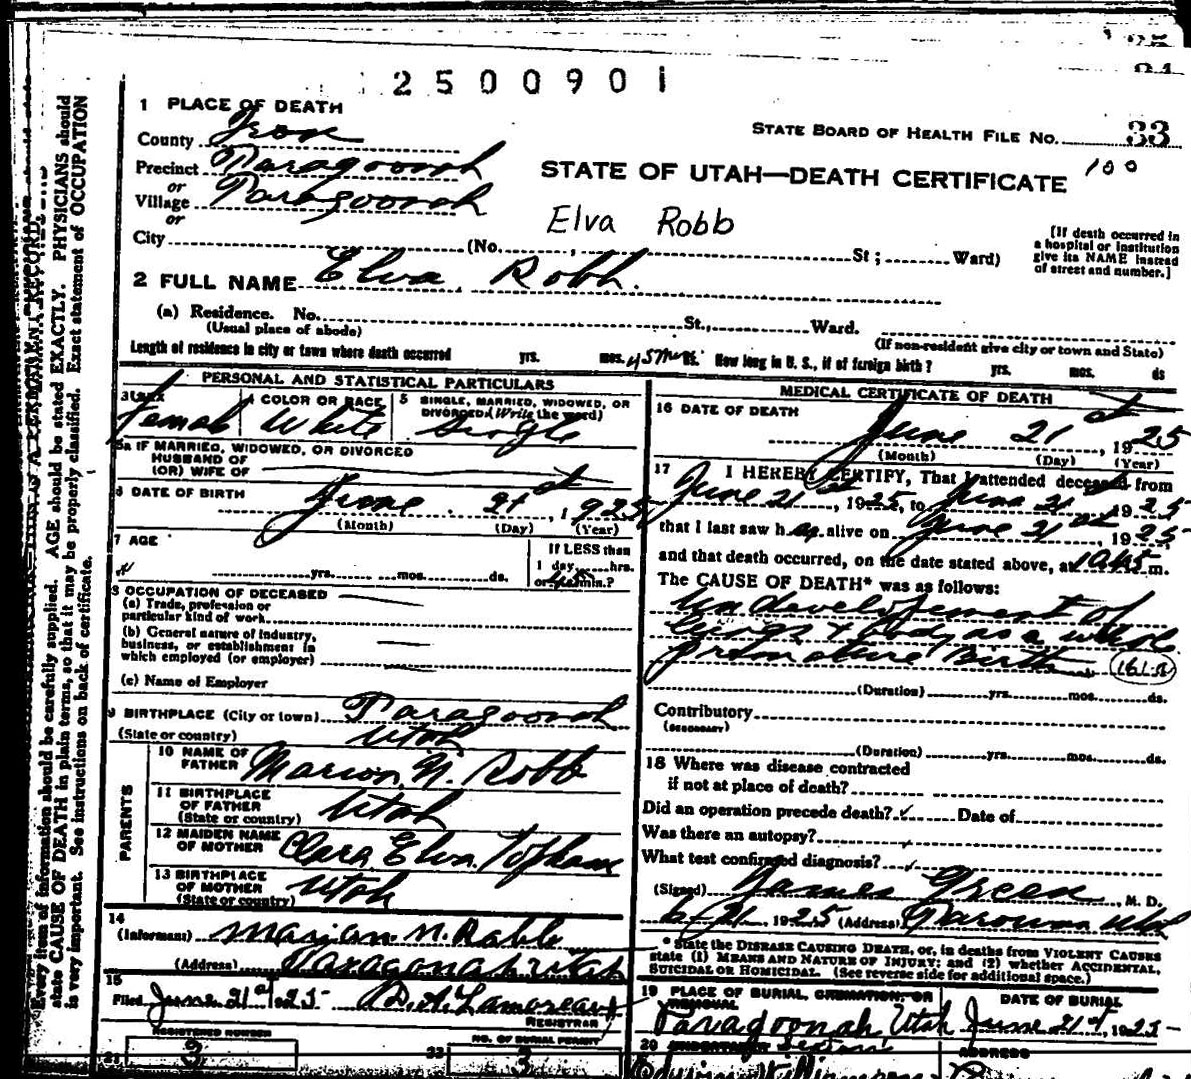 2500901
1 PLACE OF DEATH
STATE BOARD OF HEALTH FILE No. 33
County Iron
100
Precinct Paragoonah
STATE OF UTAH—DEATH CERTIFICATE
or
Village Paragoonah
or
Elva Robb
City (No. , St ; Ward)
[If death occurred in
a hospital or institution
give its NAME instead
of street and number.]
2 FULL NAME Elva Robb.
(a) Residence. No. St., Ward.
(Usual place of abode)
(If non-resident give city or town and State)
Length of residence in city or town where death occurred yrs. mos. 45 Min ds. How long in U. S., if of foreign birth? yrs. mos. ds
PERSONAL AND STATISTICAL PARTICULARS
3 SEX Female
4 COLOR OR RACE White
5 SINGLE, MARRIED, WIDOWED, OR
DIVORCED (Write the word)
Single
5a IF MARRIED, WIDOWED, OR DIVORCED
HUSBAND OF
(OR) WIFE OF
6 DATE OF BIRTH June 21st, 1925
(Month) (Day) (Year)
7 AGE
yrs. mos. ds.
If LESS than
1 day hrs.
or 45 min.?
8 OCCUPATION OF DECEASED
(a) Trade, profession or
particular kind of work
(b) General nature of industry,
business, or establishment in
which employed (or employer)
(c) Name of Employer
9 BIRTHPLACE (City or town) Paragoonah
(State or country) Utah
PARENTS
10 NAME OF
FATHER Marion N. Robb
11 BIRTHPLACE
OF FATHER
(State or country) Utah
12 MAIDEN NAME
OF MOTHER Clara Elva Topham
13 BIRTHPLACE
OF MOTHER
(State or country) Utah
14
(Informant) Marian N. Robb
(Address) Paragonah Utah
15
Filed June 21st 1925
REGISTRAR
REGISTERED NUMBER
21 3
NO. OF BURIAL PERMIT
22 3
MEDICAL CERTIFICATE OF DEATH
16 DATE OF DEATH
June 21st, 1925
(Month) (Day) (Year)
17 I HEREBY CERTIFY, That I attended deceased from
June 21st, 1925, to June 21st 1925
that I last saw h er alive on June 21st 1925
and that death occurred, on the date stated above, at m.
The CAUSE OF DEATH* was as follows:
Undevelopement of
Lungs & body as a whole
premature Birth
(Duration) yrs. mos. ds.
Contributory
(SECONDARY)
(Duration) yrs. mos. ds.
18 Where was disease contracted
if not at place of death?
Did an operation precede death? Date of
Was there an autopsy?
What test confirmed diagnosis?
(Signed) James Green, M. D.
6-21 1925 (Address) Parowan Utah
* State the DISEASE CAUSING DEATH, or, in deaths from VIOLENT CAUSES
state (1) MEANS AND NATURE OF INJURY; and (2) whether ACCIDENTAL,
SUICIDAL OR HOMICIDAL. (See reverse side for additional space.)
19 PLACE OF BURIAL, CREMATION, OR
REMOVAL
DATE OF BURIAL
Paragoonah Utah June 21st, 1925
20 UNDERTAKER
ADDRESS
Every item of information should be carefully supplied. AGE should be stated EXACTLY. PHYSICIANS should
state CAUSE OF DEATH in plain terms, so that it may be properly classified. Exact statement of OCCUPATION
is very important. See instructions on back of certificate.